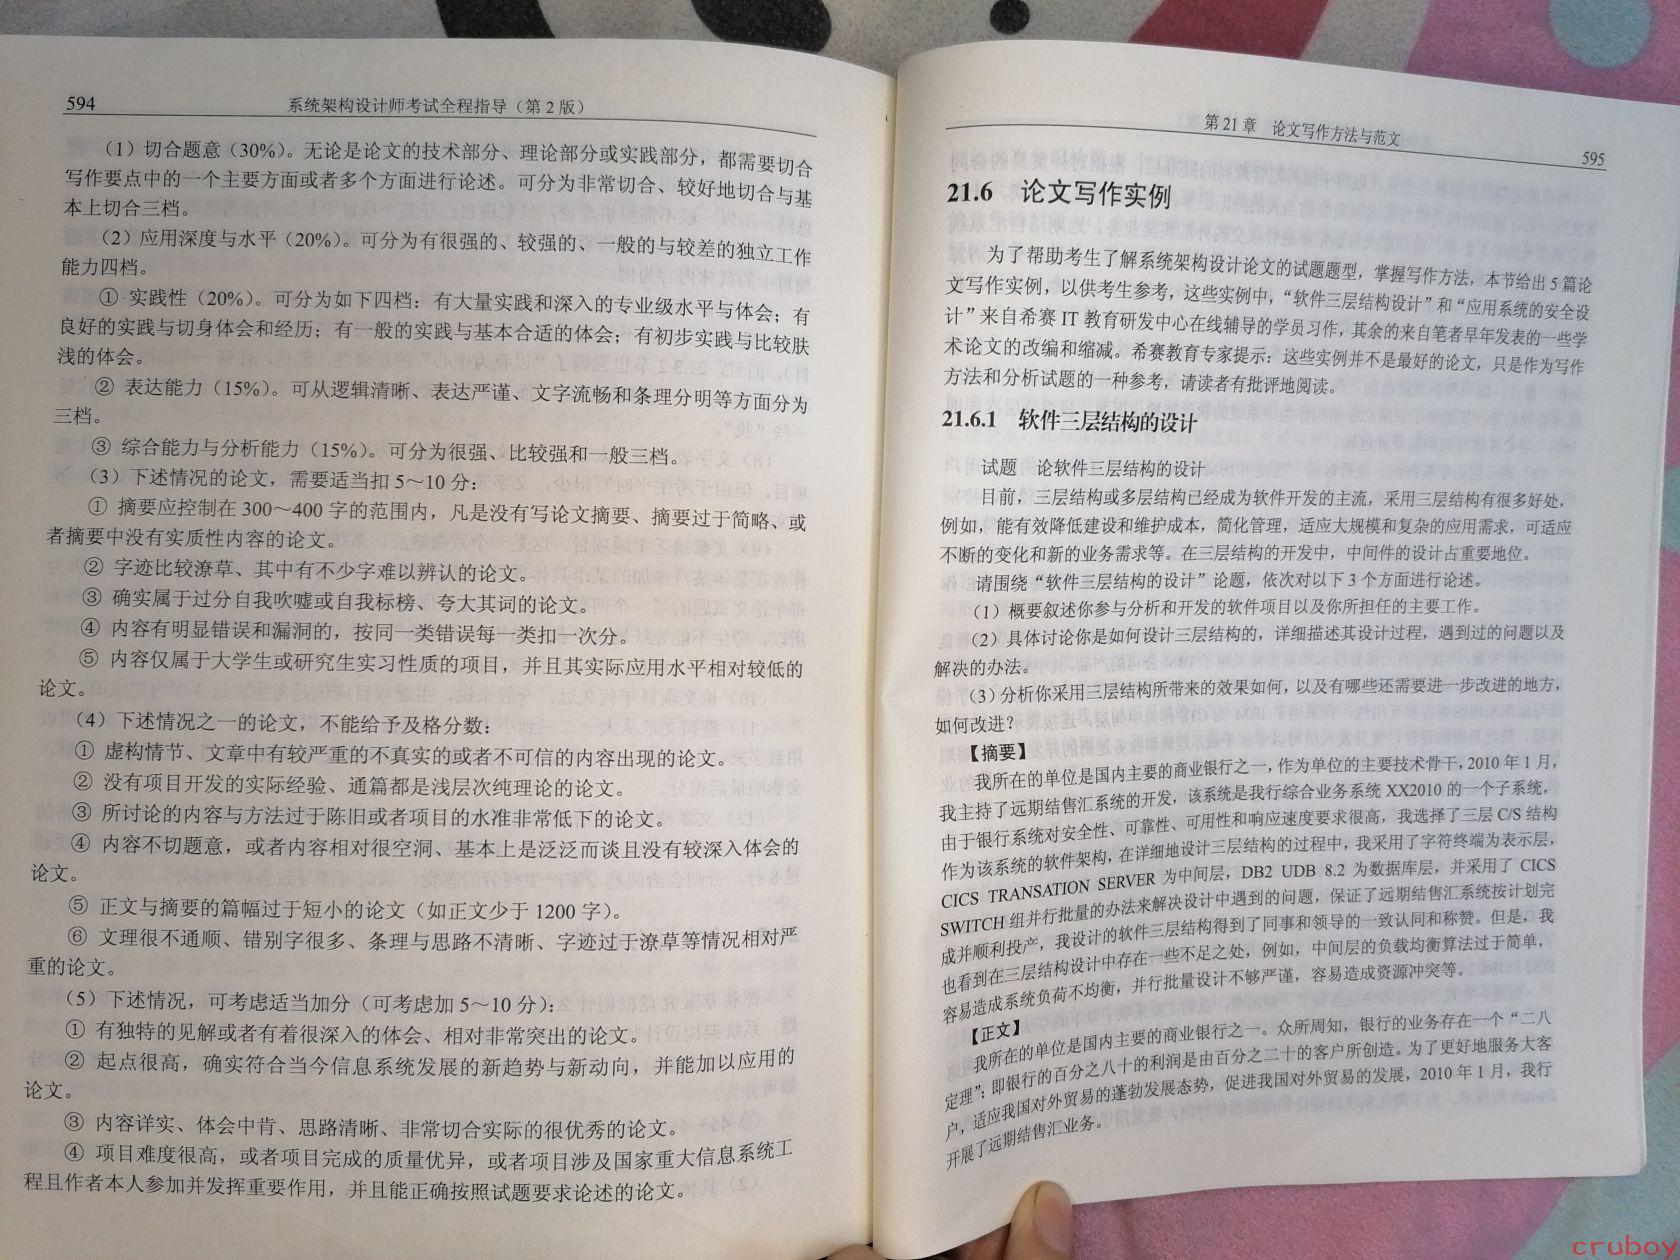 594
系统架构设计师考试全程指导（第 2 版）
（1）切合题意（30%）。无论是论文的技术部分、理论部分或实践部分，都需要切合
写作要点中的一个主要方面或者多个方面进行论述。可分为非常切合、较好地切合与基
本上切合三档。
（2）应用深度与水平（20%）。可分为有很强的、较强的、一般的与较差的独立工作
能力四档。
① 实践性（20%）。可分为如下四档：有大量实践和深入的专业级水平与体会；有
良好的实践与切身体会和经历；有一般的实践与基本合适的体会；有初步实践与比较肤
浅的体会。
② 表达能力（15%）。可从逻辑清晰、表达严谨、文字流畅和条理分明等方面分为
三档。
③ 综合能力与分析能力（15%）。可分为很强、比较强和一般三档。
（3）下述情况的论文，需要适当扣 5～10 分：
① 摘要应控制在 300～400 字的范围内，凡是没有写论文摘要、摘要过于简略、或
者摘要中没有实质性内容的论文。
② 字迹比较潦草、其中有不少字难以辨认的论文。
③ 确实属于过分自我吹嘘或自我标榜、夸大其词的论文。
④ 内容有明显错误和漏洞的，按同一类错误每一类扣一次分。
⑤ 内容仅属于大学生或研究生实习性质的项目，并且其实际应用水平相对较低的
论文。
（4）下述情况之一的论文，不能给予及格分数：
① 虚构情节、文章中有较严重的不真实的或者不可信的内容出现的论文。
② 没有项目开发的实际经验、通篇都是浅层次纯理论的论文。
③ 所讨论的内容与方法过于陈旧或者项目的水准非常低下的论文。
④ 内容不切题意，或者内容相对很空洞、基本上是泛泛而谈且没有较深入体会的
论文。
⑤ 正文与摘要的篇幅过于短小的论文（如正文少于 1200 字）。
⑥ 文理很不通顺、错别字很多、条理与思路不清晰、字迹过于潦草等情况相对严
重的论文。
（5）下述情况，可考虑适当加分（可考虑加 5～10 分）：
① 有独特的见解或者有着很深入的体会、相对非常突出的论文。
② 起点很高，确实符合当今信息系统发展的新趋势与新动向，并能加以应用的
论文。
③ 内容详实、体会中肯、思路清晰、非常切合实际的很优秀的论文。
④ 项目难度很高，或者项目完成的质量优异，或者项目涉及国家重大信息系统工
程且作者本人参加并发挥重要作用，并且能正确按照试题要求论述的论文。
第 21 章 论文写作方法与范文
595
21.6 论文写作实例
为了帮助考生了解系统架构设计论文的试题题型，掌握写作方法，本节给出 5 篇论
文写作实例，以供考生参考，这些实例中，“软件三层结构设计”和“应用系统的安全设
计”来自希赛 IT 教育研发中心在线辅导的学员习作，其余的来自笔者早年发表的一些学
术论文的改编和缩减。希赛教育专家提示：这些实例并不是最好的论文，只是作为写作
方法和分析试题的一种参考，请读者有批评地阅读。
21.6.1 软件三层结构的设计
试题 论软件三层结构的设计
目前，三层结构或多层结构已经成为软件开发的主流，采用三层结构有很多好处，
例如，能有效降低建设和维护成本，简化管理，适应大规模和复杂的应用需求，可适应
不断的变化和新的业务需求等。在三层结构的开发中，中间件的设计占重要地位。
请围绕“软件三层结构的设计”论题，依次对以下 3 个方面进行论述。
（1）概要叙述你参与分析和开发的软件项目以及你所担任的主要工作。
（2）具体讨论你是如何设计三层结构的，详细描述其设计过程，遇到过的问题以及
解决的办法。
（3）分析你采用三层结构所带来的效果如何，以及有哪些还需要进一步改进的地方，
如何改进？
【摘要】
我所在的单位是国内主要的商业银行之一，作为单位的主要技术骨干，2010 年 1 月，
我主持了远期结售汇系统的开发，该系统是我行综合业务系统 XX2010 的一个子系统，
由于银行系统对安全性、可靠性、可用性和响应速度要求很高，我选择了三层 C/S 结构
作为该系统的软件架构，在详细地设计三层结构的过程中，我采用了字符终端为表示层，
CICS TRANSATION SERVER 为中间层，DB2 UDB 8.2 为数据库层，并采用了 CICS
SWITCH 组并行批量的办法来解决设计中遇到的问题，保证了远期结售汇系统按计划完
成并顺利投产，我设计的软件三层结构得到了同事和领导的一致认同和称赞。但是，我
也看到在三层结构设计中存在一些不足之处，例如，中间层的负载均衡算法过于简单，
容易造成系统负荷不均衡，并行批量设计不够严谨，容易造成资源冲突等。
【正文】
我所在的单位是国内主要的商业银行之一。众所周知，银行的业务存在一个“二八
定理”：即银行的百分之八十的利润是由百分之二十的客户所创造。为了更好地服务大客
户，适应我国对外贸易的蓬勃发展态势，促进我国对外贸易的发展，2010 年 1 月，我行
开展了远期结售汇业务。
cruboy